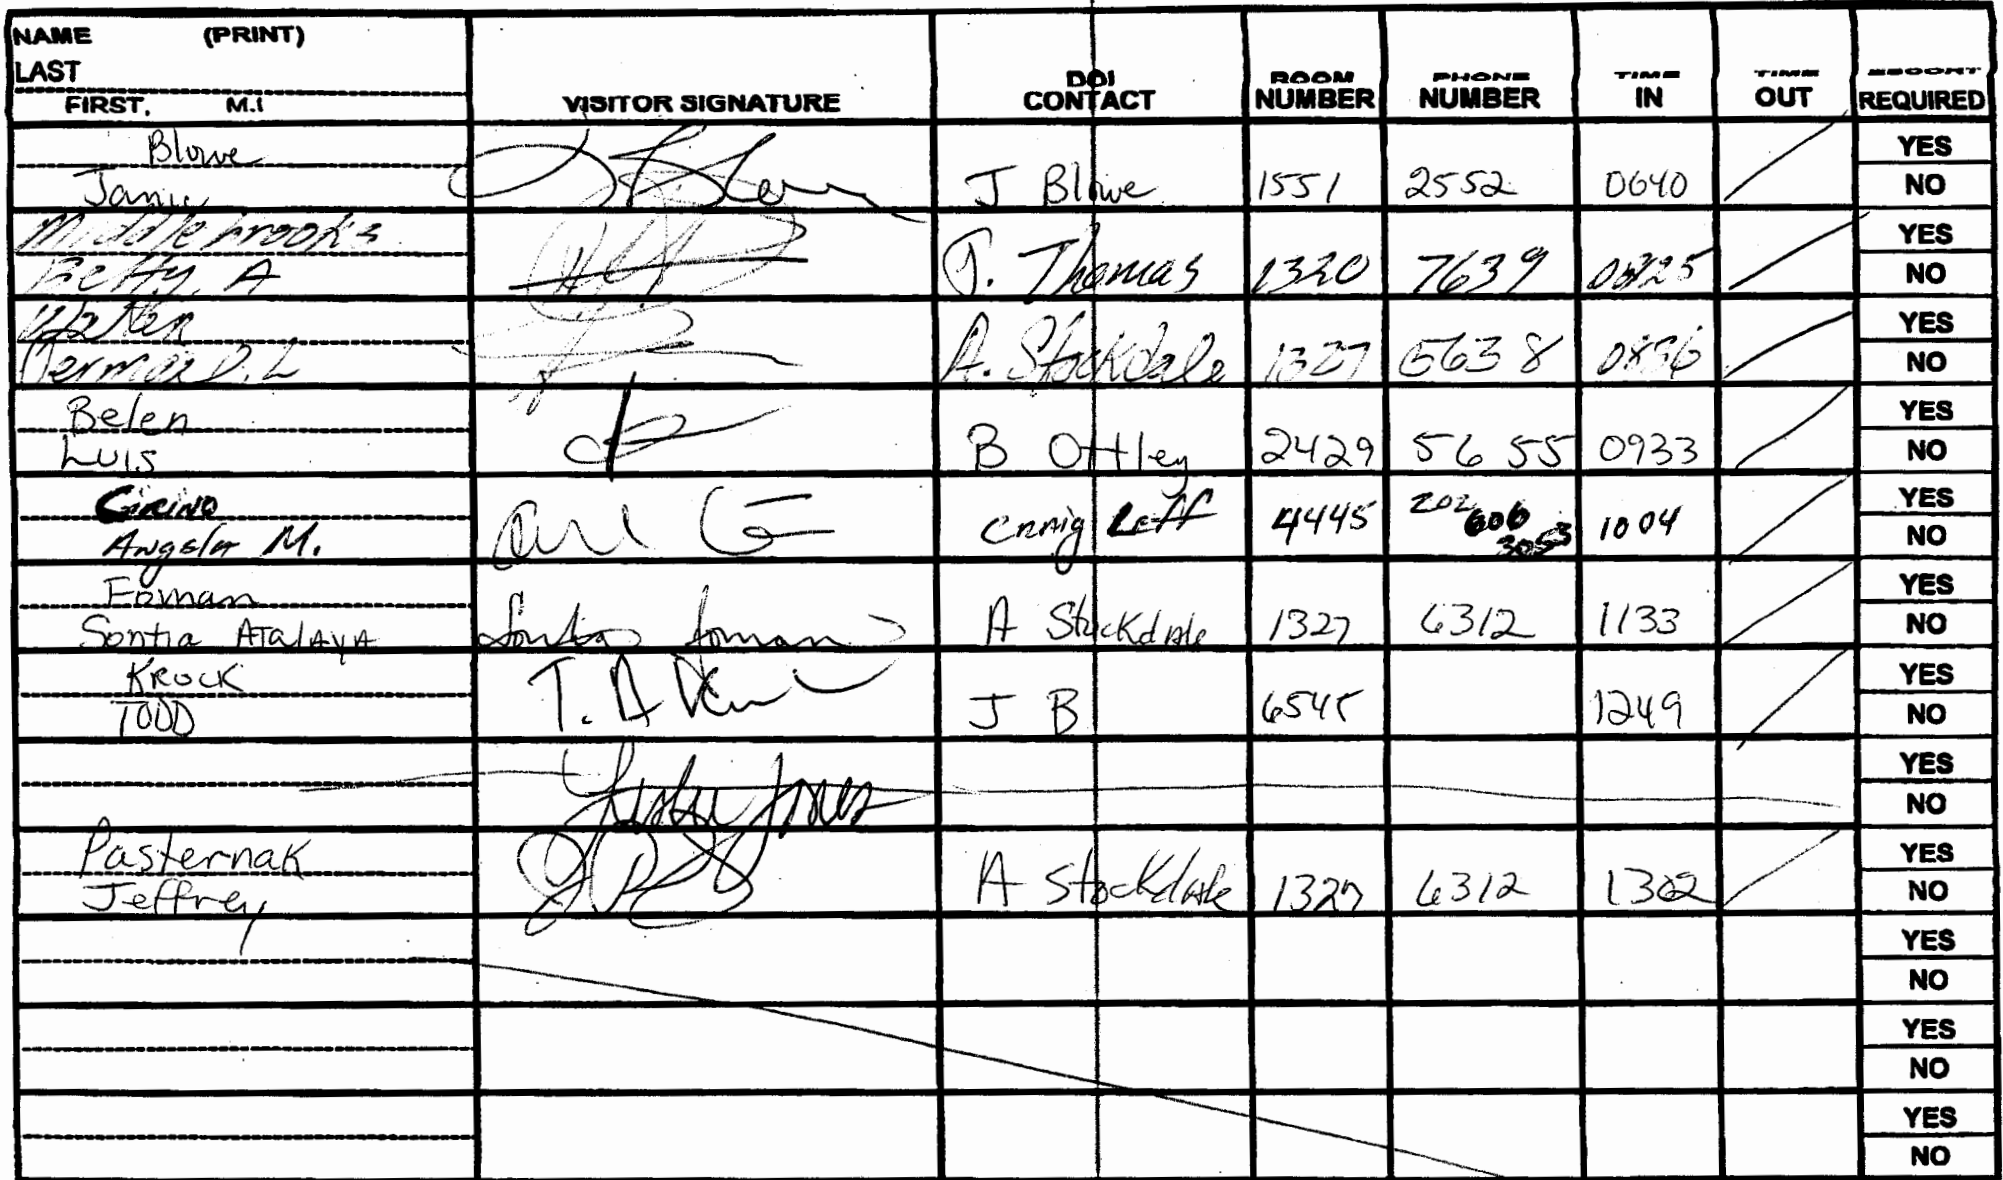 NAME (PRINT)
LAST
FIRST, M.I
VISITOR SIGNATURE
DOI
CONTACT
ROOM
NUMBER
PHONE
NUMBER
TIME
IN
TIME
OUT
ESCORT
REQUIRED
Blowe
J Blowe 1551 2552 0640
YES
NO
Middlebrooks
Betty, A
J. Thomas 1320 7639
YES
NO
A. Stockdale 1327 5638
YES
NO
Belen
Luis
B Ottley 2429 56 55 0933
YES
NO
Cirino
Angela M.
Craig Leff 4445 202 606 3053 1004
YES
NO
Foman
Sontia Atalaya
A Stockdale 1327 6312 1133
YES
NO
Krock
TODD
J B 6545 1249
YES
NO
Jones
YES
NO
Pasternak
Jeffrey
A Stockdale 1327 6312 1302
YES
NO
YES
NO
YES
NO
YES
NO